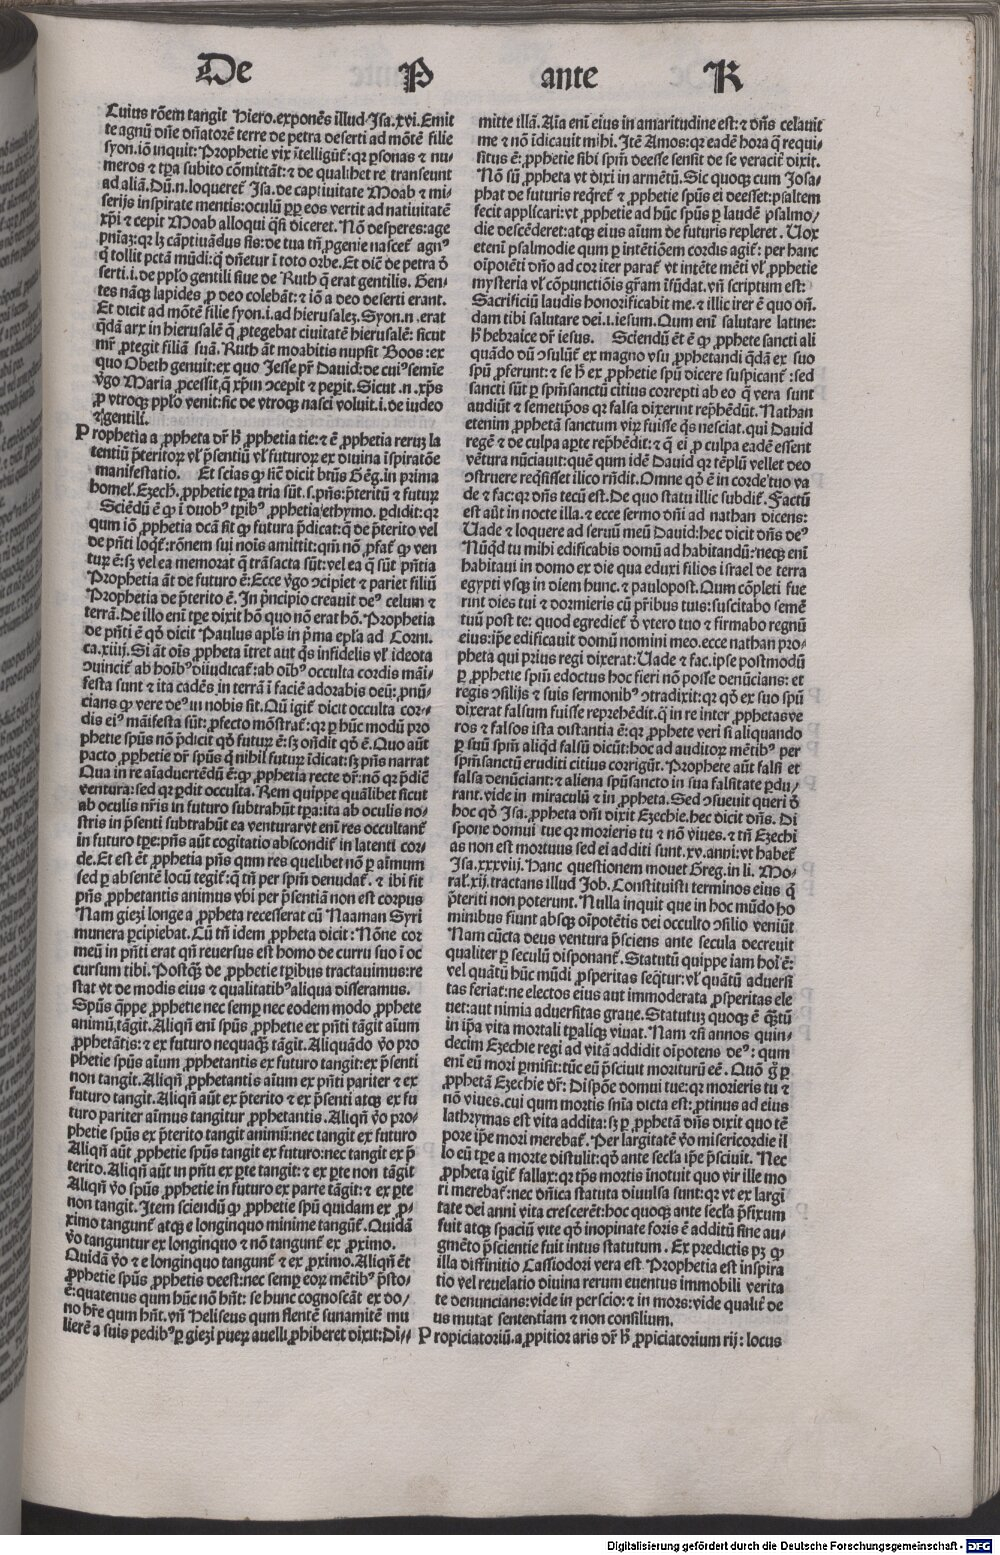 De P ante R
Cuius rōem tangit Hiero. exponēs illud Isa. xvi. Emit
te agnū dn̄e dn̄atorē terre de petra deserti ad mōtē filie
syon. iō inquit: Prophetie vix ītelligūt᷑: qꝛ ꝑsonas ⁊ nu-
meros ⁊ tꝑa subito cōmittāt: ⁊ de qualibet re transeunt
ad aliā. Dū .n. loqueret᷑ Isa. de captiuitate Moab ⁊ mi-
serijs inspirate mentis: oculū ꝓpꝑ eos vertit ad natiuitatē
xp̄i ⁊ cepit Moab alloqui q̄si diceret. Nō desperes: age
pn̄iaz: qꝛ lꝫ cāptiuādus sis: de tua tn̄ ꝓgenie nascet᷑ agnꝰ
q̄ tollit pctā mūdi: q̄ dn̄etur ī toto orbe. Et diē de petra d̄
serti .i. de pplo gentili siue de Ruth q̄ erat gentilis. Gen-
tes nāqꝫ lapides ꝓ deo colebāt: ⁊ iō a deo deserti erant.
Et dicit ad mōtē filie syon .i. ad hierusalez. Syon .n. erat
q̄dā arx in hierusalē q̄ ꝓtegebat ciuitatē hierusalē: sicut
mr̄ ꝓtegit filiā suā. Ruth āt moabitis nupsit Boos: ex
quo Obeth genuit: ex quo Jesse pr̄ Dauid: de cuiꝰ semīe
v̄go Maria ꝓcessit, q̄ xp̄m ↄcepit ⁊ peꝑit. Sicut .n. xp̄s
ꝓ vtroqꝫ pplo venit: sic de vtroqꝫ nasci voluit .i. de iudeo
⁊ gentili.
Prophetia a ꝓpheta dr̄ h̄ ꝓphetia tie: ⁊ ē ꝓphetia reruꝫ la
tentiū p̄teritoꝝ vl̓ p̄sentiū vl̓ futuroꝝ ex diuina īspiratōe
manifestatio. Et scias ꝙ sic̄ dicit btūs Gēg. in prima
homel̓. Ezech̄. ꝓphetie tꝑa tria sūt .s. pn̄s: p̄teritū ⁊ futuꝝ
Sciēdū ē ꝙ ī duobꝰ tꝑibꝰ ꝓphetia ethymo. ꝑdidit: qꝛ
qum iō ꝓphetia dcā sit ꝙ futura p̄dicat: q̄ de p̄terito vel
de pn̄ti loq̄t᷑: rōnem sui nois amittit: qm̄ nō ꝓfat᷑ ꝙ ven
tuꝝ ē: sꝫ vel ea memorat q̄ trāsacta sūt: vel ea q̄ sūt pn̄tia
Prophetia āt de futuro ē: Ecce v̄go ↄcipiet ⁊ pariet filiū
Prophetia de p̄terito ē. In p̄ncipio creauit deꝰ celum ⁊
terrā. De illo enī tꝑe dixit hō quo nō erat hō. Prophetia
de pn̄ti ē qd̄ dicit Paulus apl̄s in p̄ma epl̄a ad Corin.
ca. xiiij. Si āt ois ꝓpheta ītret aut q̄s infidelis vl̓ ideota
ↄuincit᷑ ab hoībꝰ diiudicat᷑: ab oībꝰ occulta cordis māi-
festa sunt ⁊ ita cadēs in terrā ī faciē adorabis deū: pnū-
cians ꝙ vere deꝰ in nobis sit. Qū igit᷑ dicit occulta cor-
dis eiꝰ māifesta sūt: ꝓfecto mōstrat᷑: qꝛ ꝑ hūc modū pro
phetie spūs nō p̄dicit qd̄ futuꝝ ē: sꝫ on̄dit qd̄ ē. Quo aūt
pacto ꝓphetie dr̄ spūs q̄ nihil futuꝝ īdicat: sꝫ pn̄s narrat
Qua in re aīaduertēdū ē: ꝙ ꝓphetia recte dr̄: nō qꝛ p̄dic̄
ventura: sed qꝛ ꝑdit occulta. Rem quippe quālibet sicut
ab oculis nr̄is in futuro subtrahūt tꝑa: ita ab oculis no-
stris in p̄senti subtrahūt ea venturar vt enī res occultant᷑
in futuro tꝑe: pn̄s aūt cogitatio abscondit᷑ in latenti cor-
de. Et est ēt ꝓphetia pn̄s qum res quelibet nō ꝑ aīmum
sed ꝑ absentē locū tegit᷑: q̄ tn̄ per spm̄ denudat᷑. ⁊ ibi sit
pn̄s ꝓphetantis animus vbi per p̄sentiā non est corpus
Nam giezi longe a ꝓpheta recesserat cū Naaman Syri
munera ꝑcipiebat. Cū tn̄ idem ꝓpheta dicit: Nōne cor
meū in pn̄ti erat qn̄ reuersus est homo de curru suo ī oc
cursum tibi. Postq̄ꝫ de ꝓphetie tꝑibus tractauimus: re
stat vt de modis eius ⁊ qualitatibꝰ aliqua disseramus.
Spūs q̄ppe ꝓphetie nec semꝑ nec eodem modo ꝓphete
animū tāgit. Aliqn̄ enī spūs ꝓphetie ex pn̄ti tāgit aīum
ꝓphetātis: ⁊ ex futuro nequaq̄ꝫ tāgit. Aliquādo v̄o pro
phetie spūs aīum ꝓphetantis ex futuro tangit: ex p̄senti
non tangit. Aliqn̄ ꝓphetantis aīum ex pn̄ti pariter ⁊ ex
futuro tangit. Aliqn̄ aūt ex p̄terito ⁊ ex p̄senti atqꝫ ex fu
turo pariter aīmus tangitur ꝓphetantis. Aliqn̄ v̄o pro-
phetie spūs ex p̄terito tangit animū: nec tangit ex futuro
Aliqn̄ aūt ꝓphetie spūs tangit ex futuro: nec tangit ex p̄
terito. Aliqn̄ aūt in pn̄ti ex ꝑte tangit: ⁊ ex ꝑte non tāgit
Aliqn̄ v̄o spūs ꝓphetie in futuro ex parte tāgit: ⁊ ex ꝑte
non tangit. Item sciendū ꝙ ꝓphetie spū quidam ex ꝓ-
ximo tangunt᷑ atqꝫ e longinquo minime tangūt᷑. Quidā
v̄o tanguntur ex longinquo ⁊ nō tangunt᷑ ex ꝓximo.
Quidā v̄o ⁊ e longinquo tangunt᷑ ⁊ ex ꝓximo. Aliqn̄ ēt
ꝓphetie spūs ꝓphetis deest: nec semꝑ eoꝝ mētibꝰ p̄sto-
ē: quatenus qum hūc nō hn̄t: se hunc cognoscāt ex do-
no hr̄e qum hn̄t. vn̄ Heliseus qum flentē sunamitē mu
lierē a suis pedibꝰ ꝑ giezi pueꝝ auelli ꝓhiberet dixit: Di-
mitte illā. Aīa enī eius in amaritudine est: ⁊ dn̄s celauit
me ⁊ nō īdicauit mihi. Itē Amos: qꝛ eadē hora q̄ requi-
situs ē: ꝓphetie sibi spm̄ deesse sensit de se veracit᷑ dixit.
Nō sū ꝓpheta vt dixi in armētū. Sic quoqꝫ cum Josa-
phat de futuris reqr̄et᷑ ⁊ ꝓphetie spūs ei deesset: psaltem
fecit applicari: vt ꝓphetie ad hūc spūs ꝑ laudē psalmo-
die descēderet: atqꝫ eius aīum de futuris repleret. Uox
etenī psalmodie qum ꝑ intētiōem cordis agit᷑: per hanc
oīpotēti dn̄o ad cor iter parat᷑ vt intēte mēti vl̓ ꝓphetie
mysteria vl̓ cōpunctiōis gr̄am īfūdat. vn̄ scriptum est:
Sacrificiū laudis honorificabit me. ⁊ illic iter ē quo on̄.
dam tibi salutare dei .i. iesum. Qum enī salutare latine:
h̄ hebraice dr̄ iesus. Sciendū ēt ē ꝙ ꝓphete sancti ali
quādo dū ↄsulūt᷑ ex magno vsu ꝓphetandi q̄dā ex suo
spū ꝓferunt: ⁊ se h̄ ex ꝓphetie spū dicere suspicant᷑: sed
sancti sūt ꝑ spm̄sanctū citius correpti ab eo q̄ vera sunt
audiūt ⁊ semetip̄os qꝛ falsa dixerint rep̄hēdūt. Nathan
etenim ꝓphetā sanctum viꝝ fuisse q̄s nesciat. qui Dauid
regē ⁊ de culpa aꝑte rep̄hēdit: ⁊ q̄ ei ꝓ culpa eadē essent
vētura nūciauit: quē qum idē Dauid qꝛ tēplū vellet deo
ↄstruere req̄sisset ilico rn̄dit. Omne qd̄ ē in corde tuo va
de ⁊ fac: qꝛ dn̄s tecū est. De quo statu illic subdit᷑. Factū
est aūt in nocte illa. ⁊ ecce sermo dn̄i ad nathan dicens:
Uade ⁊ loquere ad seruū meū Dauid: hec dicit dn̄s deꝰ
Nūqd tu mihi edificabis domū ad habitandū: neqꝫ enī
habitaui in domo ex die qua eduxi filios israel de terra
egypti vsqꝫ in diem hunc. ⁊ paulopost. Qum cōpleti fue
rint dies tui ⁊ dormieris cū pr̄ibus tuis: suscitabo semē
tuū post te: quod egrediet᷑ d̄ vtero tuo ⁊ firmabo regnū
eius: ip̄e edificauit domū nomini meo. ecce nathan pro-
pheta qui prius regi dixerat: Uade ⁊ fac. ipse postmodū
ꝑ ꝓphetie spm̄ edoctus hoc fieri nō posse denūcians: et
regis ↄsilijs ⁊ suis sermonibꝰ ↄtradixit: qꝛ qd̄ ex suo spū
dixerat falsum fuisse repreħēdit. q̄ in re inter ꝓphetas ve
ros ⁊ falsos ista distantia ē: qꝛ ꝓphete veri si aliquando
ꝑ suū spm̄ aliqd falsū dicūt: hoc ad auditoꝝ mētibꝰ per
spm̄sanctū eruditi citius corrigūt. Prophete aūt falsi et
falsa denūciant: ⁊ aliena spūsancto in sua falsitate ꝑdu-
rant. vide in miraculū ⁊ in ꝓpheta. Sed ↄsueuit queri d̄
hoc qd̄ Isa. ꝓpheta dn̄i dixit Ezechie. hec dicit dn̄s. Di
spone domui tue qꝛ morieris tu ⁊ nō viues. ⁊ tn̄ Ezechi
as non est mortuus sed ei additi sunt .xv. anni: vt habet᷑
Isa. xxxviij. Hanc questionem mouet Greg. in li. Mo-
ral̓. xij. tractans illud Job. Constituisti terminos eius q̄
p̄teriti non poterunt. Nulla inquit que in hoc mūdo ho
minibus fiunt absqꝫ oīpotētis dei occulto ↄsilio veniūt
Nam cūcta deus ventura p̄sciens ante secula decreuit
qualiter ꝑ seculū disponant᷑. Statutū quippe iam hoī ē:
vel quātū hūc mūdi ꝓsperitas seq̄tur: vl̓ quātū aduersi
tas feriat: ne electos eius aut immoderata ꝓsperitas ele
uet: aut nimia aduersitas graue. Statutuꝫ quoqꝫ ē q̄ꝫtū
in ip̄a vita mortali tꝑaliqꝫ viuat. Nam ⁊si annos quin-
decim Ezechie regi ad vitā addidit oīpotens deꝰ: qum
enī eū mori ꝑmisit: tūc eū p̄sciuit moriturū eē. Quō g̊ ꝑ
ꝓphetā Ezechie dr̄: Dispōe domui tue: qꝛ morieris tu ⁊
nō viues. cui qum mortis sn̄ia dicta est: ꝓtinus ad eius
lathrymas est vita addita: sꝫ ꝑ ꝓphetā dn̄s dixit quo tē
pore ip̄e mori merebat᷑. Per largitatē v̄o misericordie il
lo eū tꝑe a morte distulit: qd̄ ante secl̄a ip̄e p̄sciuit. Nec
ꝓpheta igit᷑ fallax: qꝛ tp̄s mortis īnotuit quo vir ille mo
ri merebat᷑: nec dn̄ica statuta diuulsa sunt: qꝛ vt ex largi
tate dei anni vita crescerēt: hoc quoqꝫ ante secl̄a p̄fixum
fuit atqꝫ spaciū vite qd̄ inopinate foris ē additū sine au-
gmēto p̄scientie fuit intus statutum. Ex predictis pꝫ ꝙ
illa diffinitio Cassiodori vera est. Prophetia est inspira
tio vel reuelatio diuina rerum euentus immobili verita
te denuncians: vide in perscio: ⁊ in mors: vide qualit᷑ de
us mutat sententiam ⁊ non consilium.
Propiciatoriū. a ꝓpitior aris dr̄ h̄ ꝓpiciatorium rij: locus
Digitalisierung gefördert durch die Deutsche Forschungsgemeinschaft - DFG